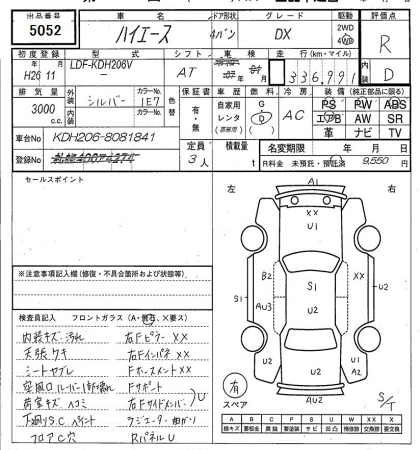 出品番号 5052
車名 ハイエース
ドア形状 4バン
グレード DX
駆動 2WD 4WD
評価点 R
初度登録 H26 11
型式 LDF-KDH206V
シフト AT
車検
走行 (km・マイル) 336,991
内装 D
排気量 3000 c.c.
外装色 シルバー
カラーNo. 1E7
内装色
カラーNo.
色替
保証書 有・無
車歴 自家用 レンタ
燃料 G D
冷房 AC
装備 (純正部品に限る)
PS PW ABS
エアB AW SR
革 ナビ TV
車台No KDH206-8081841
登録No
定員 3人
積載量 t
名変期限 年 月 日
R料金 未預託・預託 9,550円
セールスポイント
※注意事項記入欄 (修復・不具合箇所および状態等)
検査員記入 フロントガラス (A・飛石、×要ス)
内装キズ・汚れ
天張ワキ
シートヤブレ
荷室キズ ヘコミ
下廻りS.C ペイント
フロアC穴
右Fピラー XX
右Fインパネ XX
Fホースメント XX
Fサポート
右Fサイドメンバー
ラジエーター曲がり
RパネルU
U
左 右
A1
XX
U1
B2
XX
S1
AU3
U2
U2
S1
U2
U2
U1
A2
AU2
有
スペア
S/T
A B C P S U W X XX
線キズ 要板金 腐蝕 要塗装 サビ 凹凸 補修跡 要交換 交換跡